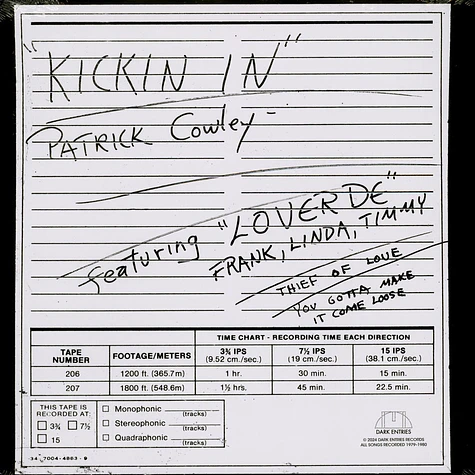 "KICKIN IN"
PATRICK Cowley -
featuring "LOVERDE"
FRANK, LINDA, TIMMY
THIEF OF LOVE
YOU GOTTA MAKE
IT COME LOOSE
TIME CHART - RECORDING TIME EACH DIRECTION
TAPE NUMBER FOOTAGE/METERS 3¾ IPS (9.52 cm./sec.) 7½ IPS (19 cm./sec.) 15 IPS (38.1 cm./sec.)
206 1200 ft. (365.7m) 1 hr. 30 min. 15 min.
207 1800 ft. (548.6m) 1½ hrs. 45 min. 22.5 min.
THIS TAPE IS
RECORDED AT:
☐ 3¾ ☐ 7½
☐ 15
☐ Monophonic (tracks)
☐ Stereophonic (tracks)
☐ Quadraphonic (tracks)
DARK ENTRIES
© 2024 DARK ENTRIES RECORDS
ALL SONGS RECORDED 1979-1980
34-7004-4863-9